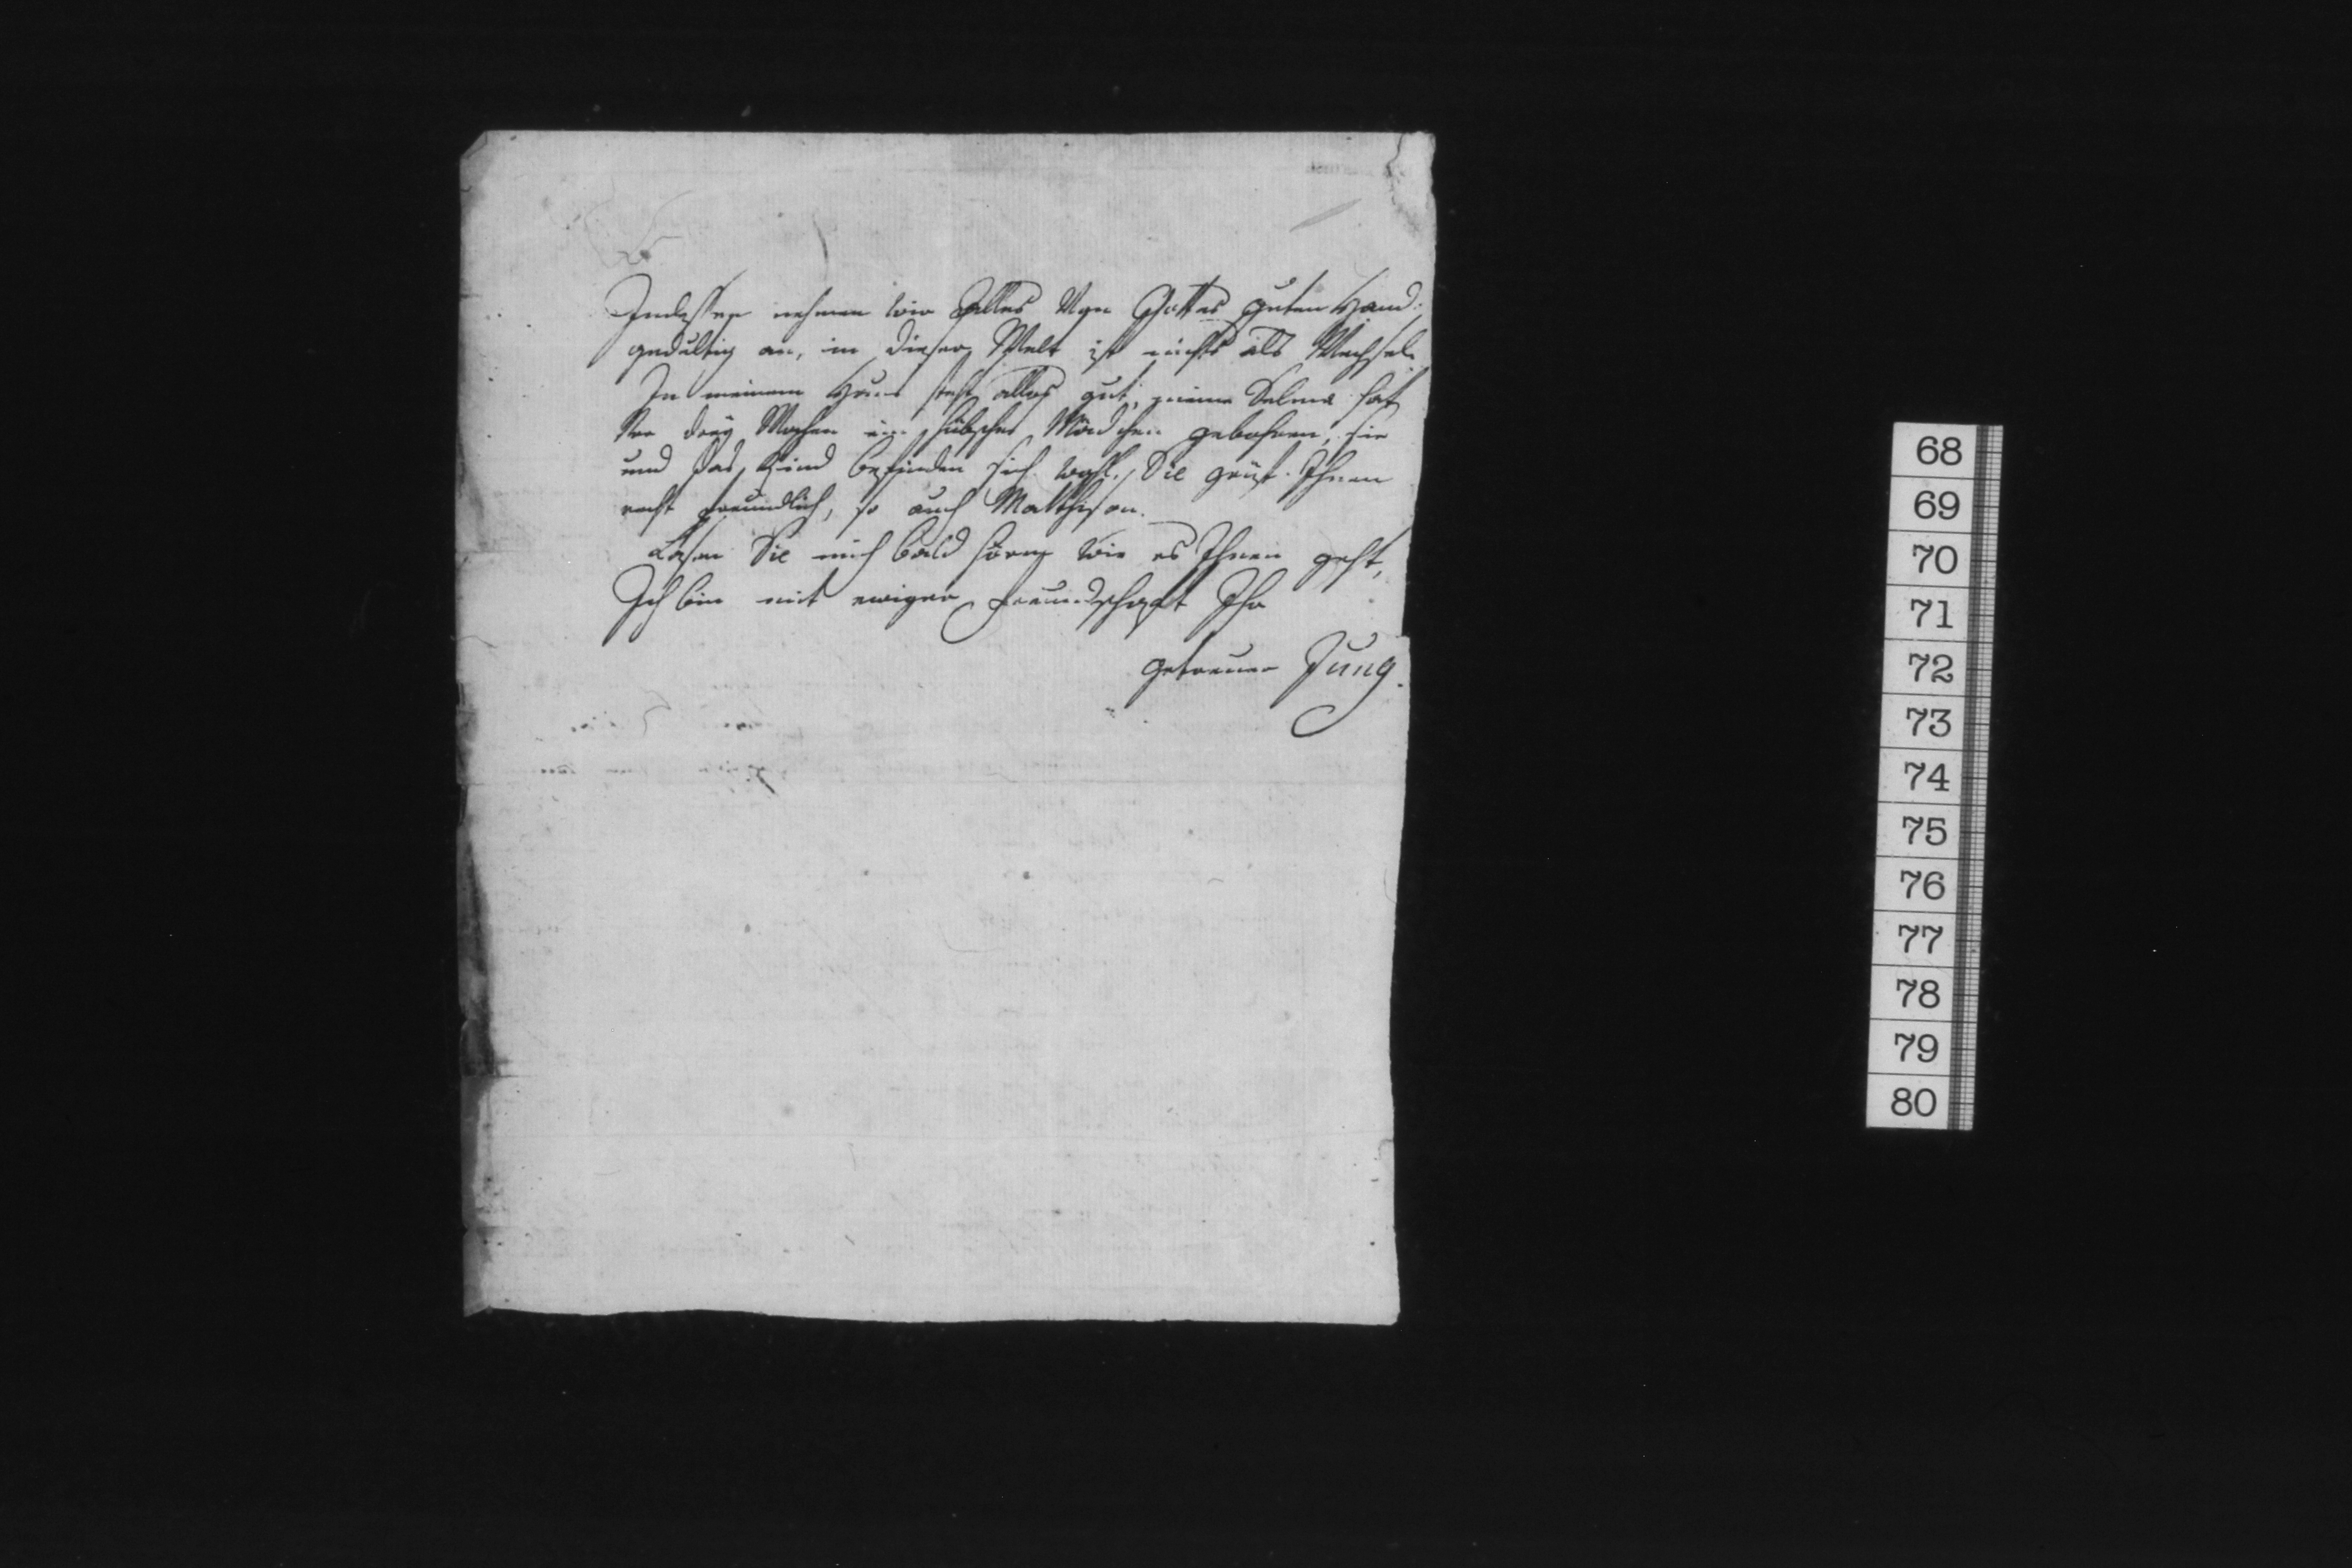 Indessen nehmen wir Alles Von Gottes guten Hand
gedultig an, in dieser Welt ist nichts als Wechsel.
In meinem Haus steht alles gut, meine Selma hat
Vor drey Wochen ein hübsches Mädchen gebohren, sie
und das Kind befinden sich wohl, Sie grüst Ihnen
recht freundlich, so auch Matthison.
Lasen Sie mich bald hören wie es Ihnen geht,
Ich bin mit ewiger Freundschaft Ihr
getreuer Jung.
68
69
70
71
72
73
74
75
76
77
78
79
80